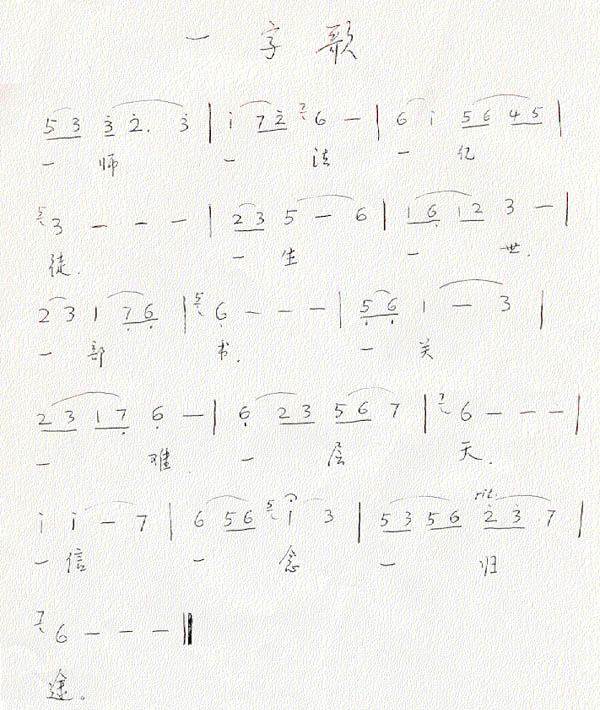 一字歌
5 3 3 2. 3 | i 7 2 7 6 — | 6 i 5 6 4 5 |
一 师 一 法 一 亿
5 3 — — — | 2 3 5 — 6 | 1 6 1 2 3 — |
徒. 一 生 一 世.
2 3 1 7 6 | 5 6 — — — | 5 6 1 — 3 |
一 部 书. 一 关
2 3 1 7 6 — | 6 2 3 5 6 7 | 7 6 — — — |
一 难. 一 层 天.
i i — 7 | 6 5 6 5 i 3 | 5 3 5 6 rit. 2 3 7 |
一 信 一 念 一 归
7 6 — — — ‖
途。